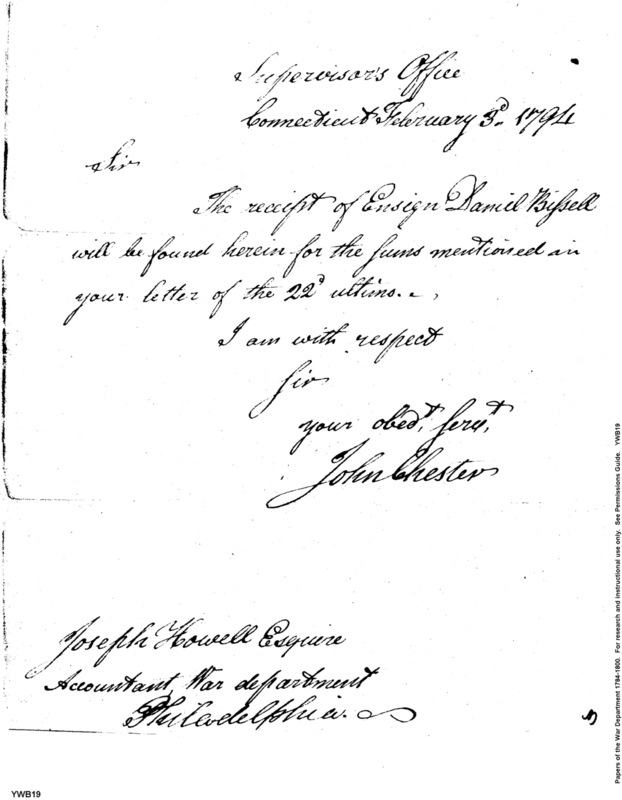 Supervisor's Office
Connecticut February 3d. 1794
Sir
The receipt of Ensign Daniel Bissell
will be found herein for the sums mentioned in
your letter of the 22d ultimo.
I am with respect
Sir
your obedt. Servt.
John Chester
Joseph Howell Esquire
Accountant, War department
Philadelphia.
YWB19
Papers of the War Department 1784-1800. For research and instructional use only. See Permissions Guide. YWB19